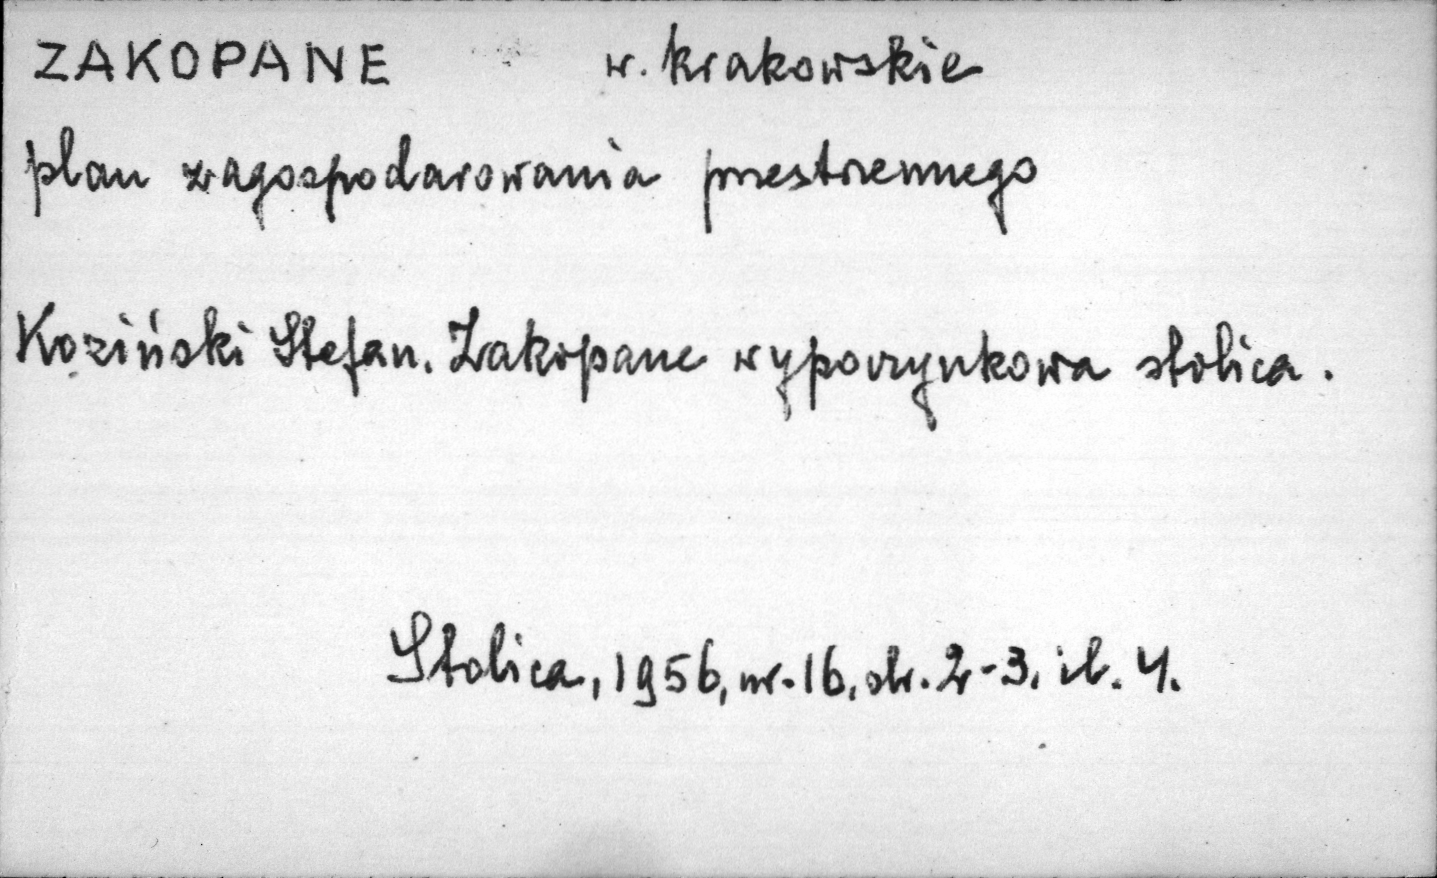 ZAKOPANE w. krakowskie
plan zagospodarowania przestrzennego
Koziński Stefan. Zakopane wypoczynkowa stolica.
Stolica, 1956, nr. 16, str. 2-3, il. 4.